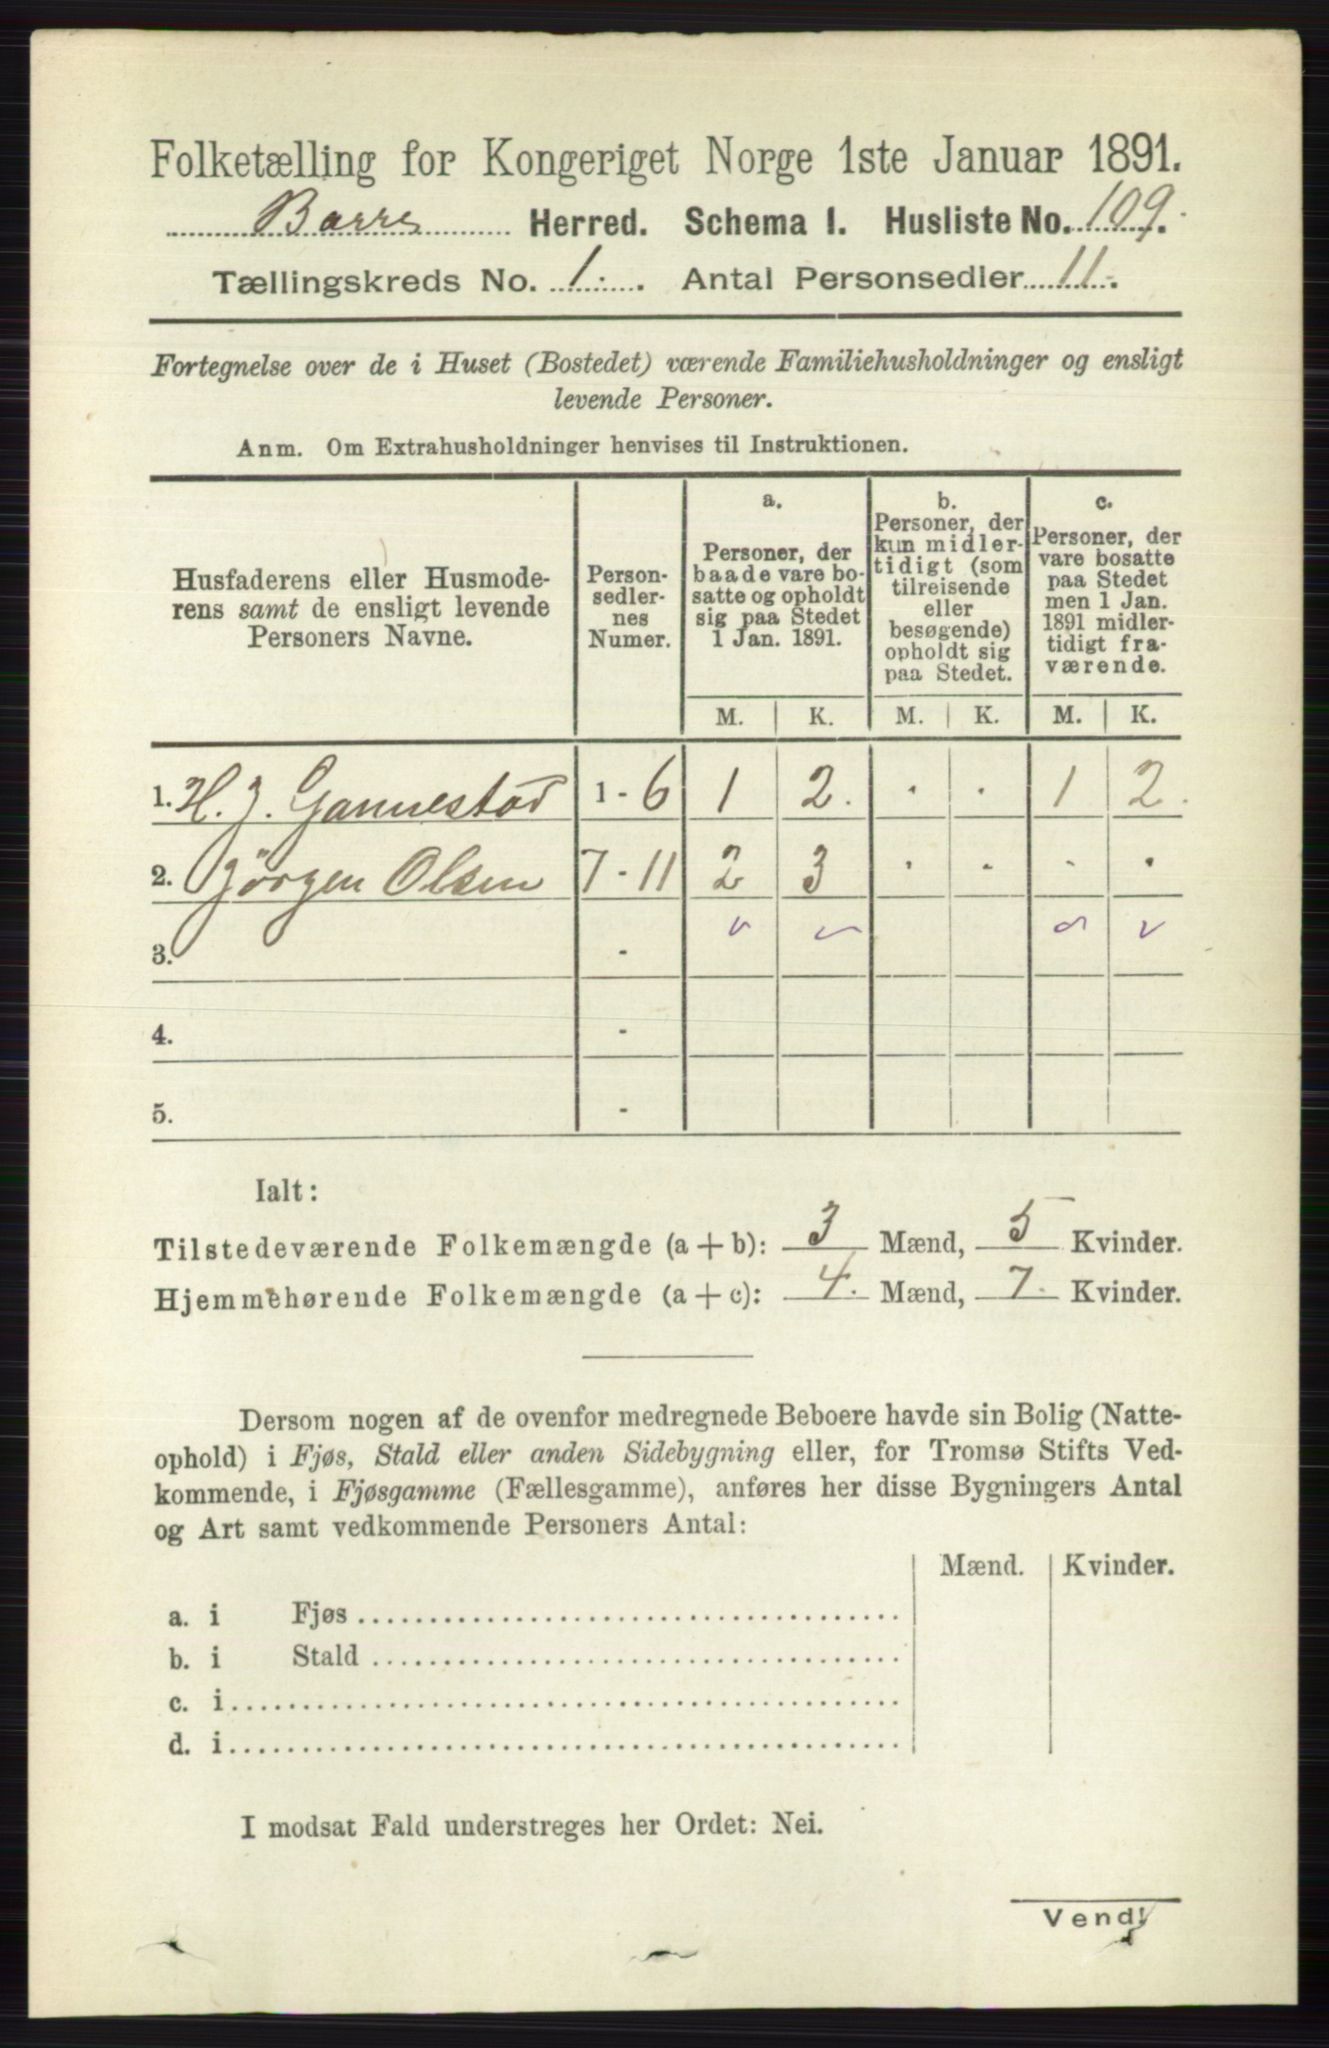 Folketælling for Kongeriget Norge 1ste Januar 1891.
Borre Herred. Schema I. Husliste No. 109.
Tællingskreds No. 1. Antal Personsedler 11.
Fortegnelse over de i Huset (Bostedet) værende Familiehusholdninger og ensligt
levende Personer.
Anm. Om Extrahusholdninger henvises til Instruktionen.
Husfaderens eller Husmode-
rens samt de ensligt levende
Personers Navne.
Person-
sedler-
nes
Numer.
a.
Personer, der
baade vare bo-
satte og opholdt
sig paa Stedet
1 Jan. 1891.
b.
Personer, der
kun midler-
tidigt (som
tilreisende
eller
besøgende)
opholdt sig
paa Stedet.
c.
Personer, der
vare bosatte
paa Stedet
men 1 Jan.
1891 midler-
tidigt fra-
værende.
M. K. M. K. M. K.
1. H. J. Gannestad 1 - 6 1 2. . . 1 2.
2. Jörgen Olsen 7 - 11 2 3 . . . .
3. -
4. -
5. -
Ialt:
Tilstedeværende Folkemængde (a + b): 3 Mænd, 5 Kvinder.
Hjemmehørende Folkemængde (a + c): 4. Mænd, 7. Kvinder.
Dersom nogen af de ovenfor medregnede Beboere havde sin Bolig (Natte-
ophold) i Fjøs, Stald eller anden Sidebygning eller, for Tromsø Stifts Ved-
kommende, i Fjøsgamme (Fællesgamme), anføres her disse Bygningers Antal
og Art samt vedkommende Personers Antal:
Mænd. Kvinder.
a. i Fjøs
b. i Stald
c. i
d. i
I modsat Fald understreges her Ordet: Nei.
Vend!